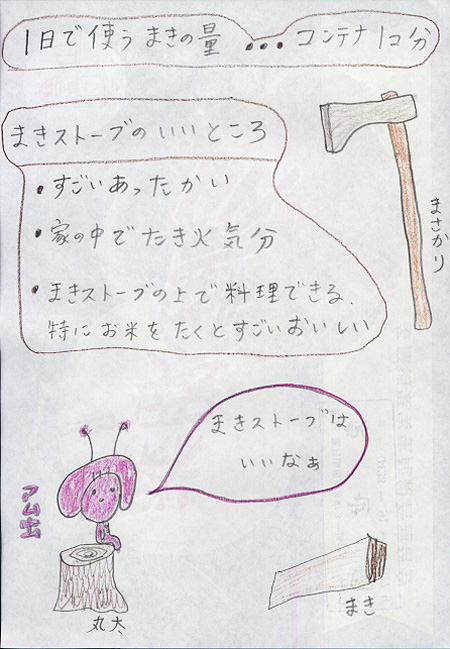 1日で使うまきの量...コンテナ1コ分
まきストーブのいいところ
・すごいあったかい
・家の中でたき火気分
・まきストーブの上で料理できる.
特にお米をたくとすごいおいしい
まさかり
まきストーブは
いいなぁ
丸太
まき